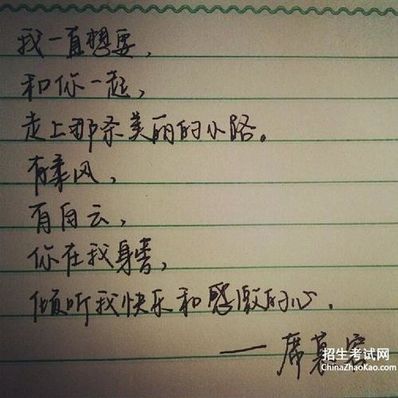 我一直想要,
和你一起,
走上那条美丽的小路。
有柔风,
有白云,
你在我身旁,
倾听我快乐和感激的心.
——席慕容
招生考试网
ChinaZhaoKao.com